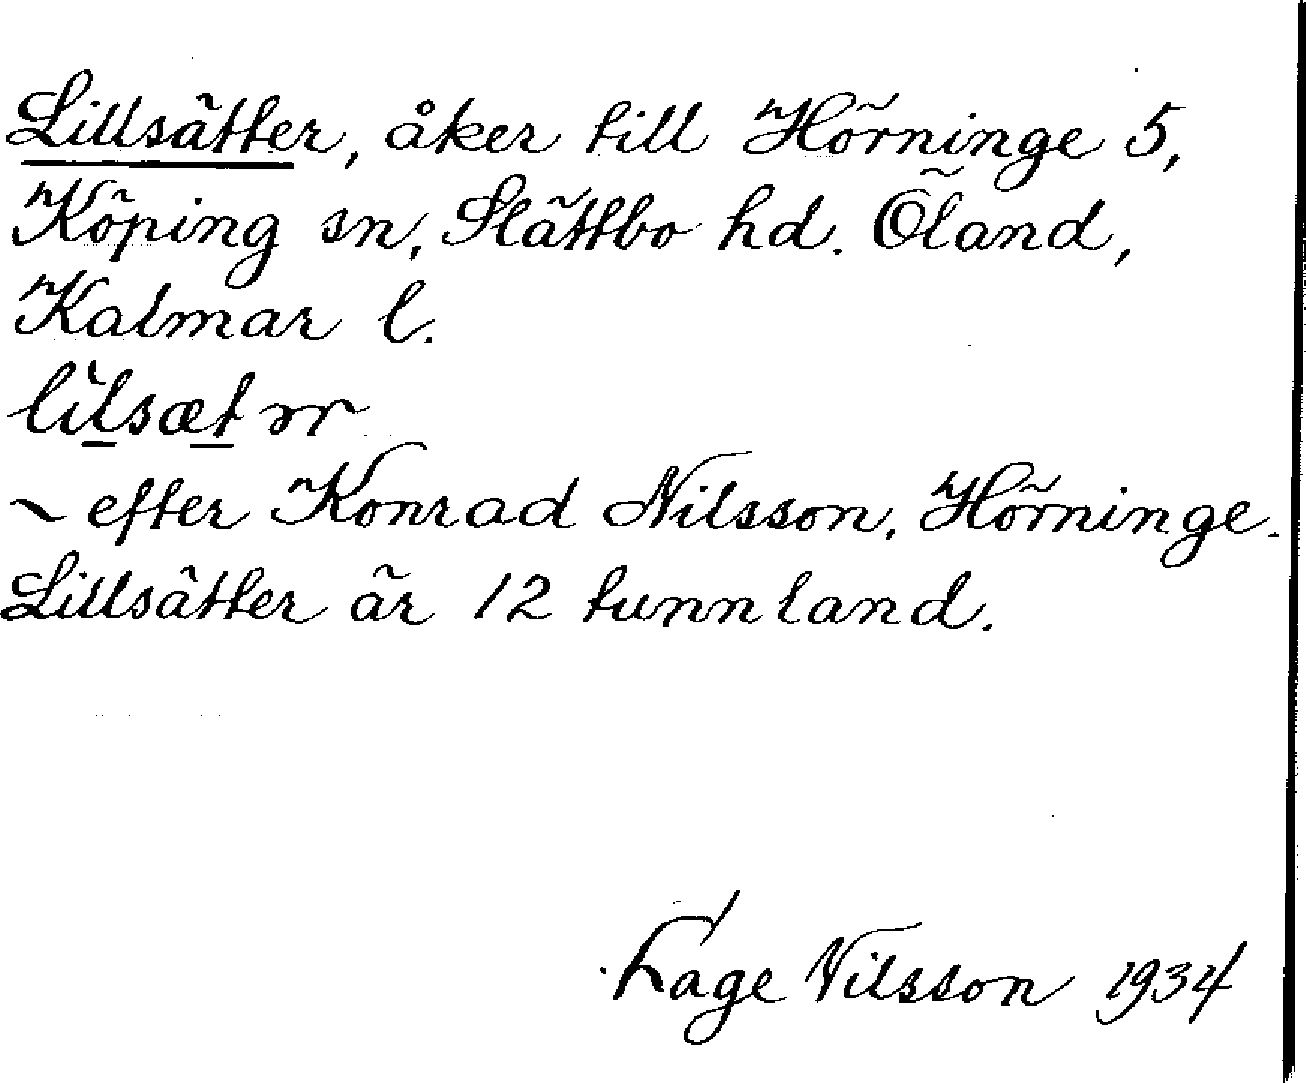 Lillsätter, åker till Hörninge 5,
Köping sn, Slättbo hd. Öland,
Kalmar l.
~ efter Konrad Nilsson, Hörninge.
Lillsätter är 12 tunnland.
Tage Nilsson 1934